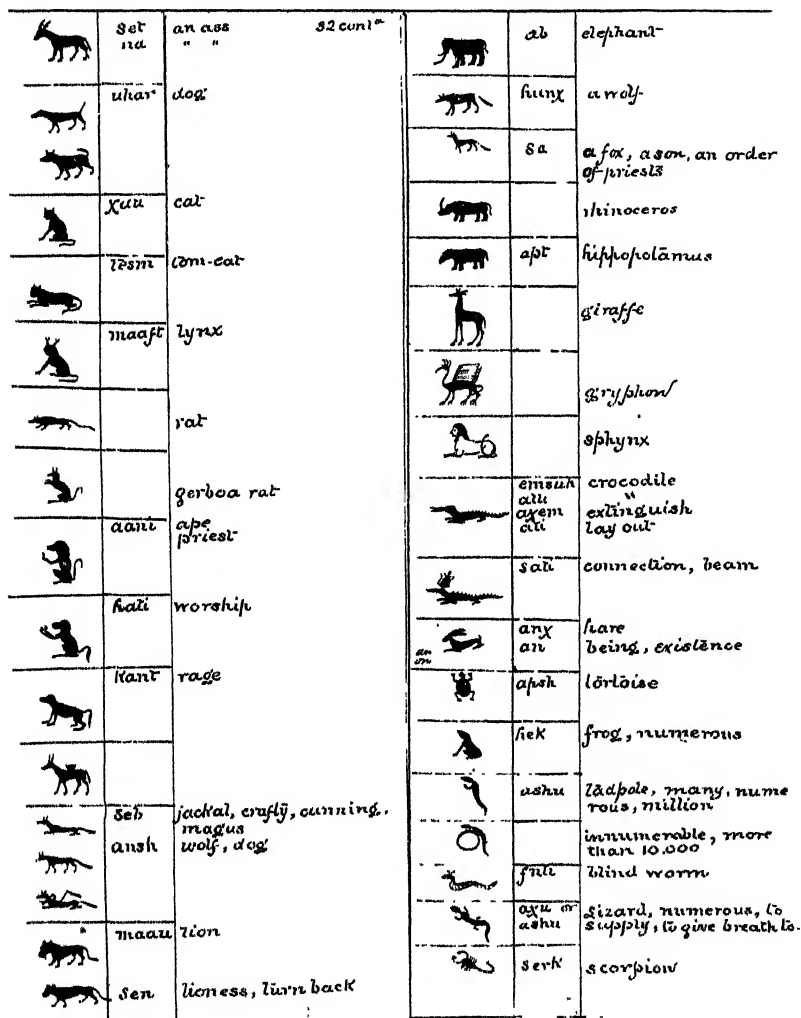 set an ass 32 cont<sup>d</sup>
na " "
uhar dog
χau cat
tesm tom-cat
maaft lynx
rat
gerboa rat
aani ape
priest
hati worship
kant rage
seb jackal, crafty, cunning,
magus
ansh wolf, dog
maau lion
sen lioness, turn back
ab elephant
hunχ a wolf
sa a fox, a son, an order
of priests
rhinoceros
apt hippopotamus
giraffe
gryphon
sphynx
emsuh crocodile
"
aχem extinguish
ati lay out
sati connection, beam
anχ hare
an being, existence
an
on
apsh tortoise
hek frog, numerous
ashu tadpole, many, nume
rous, million
innumerable, more
than 10.000
blind worm
aχu or lizard, numerous, to
ashu supply, to give breath to.
serk scorpion